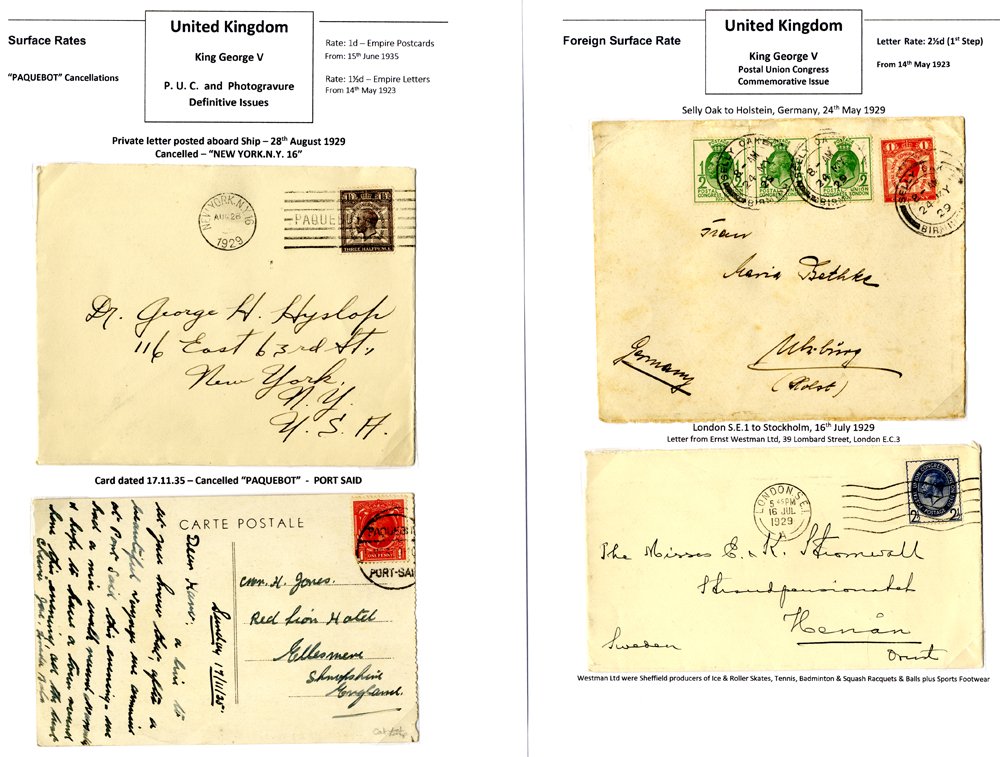 United Kingdom
King George V
P. U. C. and Photogravure
Definitive Issues
Surface Rates
"PAQUEBOT" Cancellations
Rate: 1d – Empire Postcards
From: 15th June 1935
Rate: 1½d – Empire Letters
From 14th May 1923
Private letter posted aboard Ship – 28th August 1929
Cancelled – "NEW YORK.N.Y. 16"
NEW YORK, N.Y. 16
AUG 28
1929
PAQUEBO
THREE HALFPENCE
Dr. George H. Hyslop
116 East 63rd St.,
New York,
N.Y.
U. S. A.
Card dated 17.11.35 – Cancelled "PAQUEBOT" - PORT SAID
CARTE POSTALE
ONE PENNY
PORT-SAI
Sunday 17/11/35
Dear Hano. a line to
let you know that, after a
beautiful voyage we
at Port Said this evening. We
had a nice walk round
& hope to have a
this evening,
Cwr. H. Jones.
Red Lion Hotel
Ellesmere
Shropshire
England.
United Kingdom
King George V
Postal Union Congress
Commemorative Issue
Foreign Surface Rate
Letter Rate: 2½d (1st Step)
From 14th May 1923
Selly Oak to Holstein, Germany, 24th May 1929
SELLY OAK
24 MY
29
BIRM
Frau
Maria Bethke
Ulzburg
(Holst)
Germany
London S.E.1 to Stockholm, 16th July 1929
Letter from Ernst Westman Ltd, 39 Lombard Street, London E.C.3
LONDON S.E.1
5 45PM
16 JUL
1929
A
The Misses E. & K. Stromwall
Strandpensionatet
Henån
Orust
Sweden
Westman Ltd were Sheffield producers of Ice & Roller Skates, Tennis, Badminton & Squash Racquets & Balls plus Sports Footwear